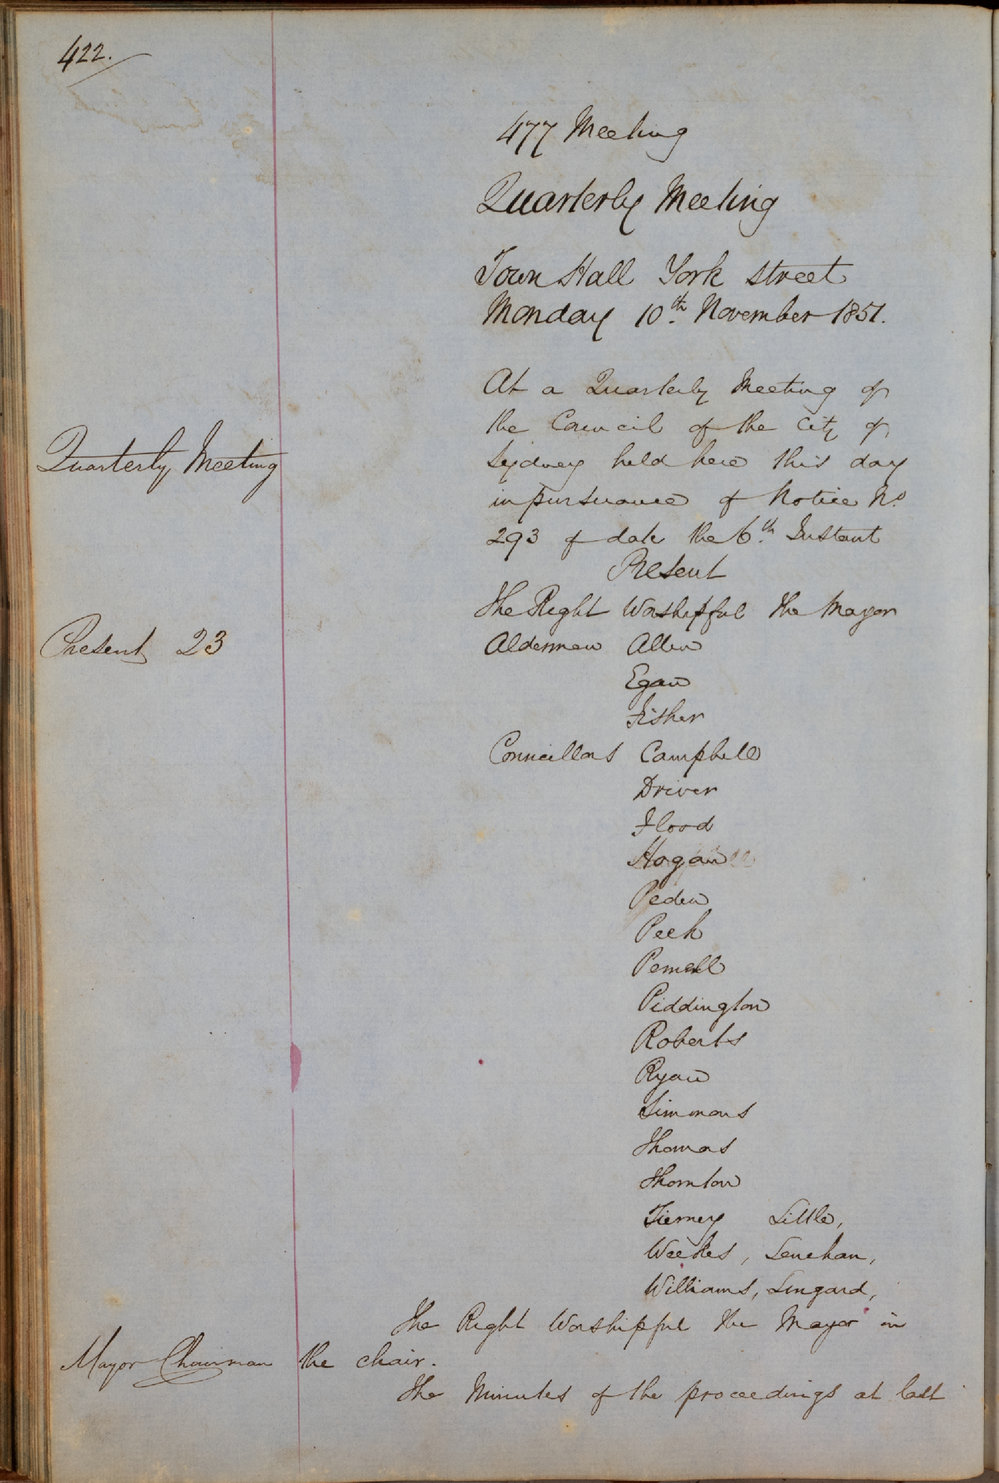 422.
477 Meeting
Quarterly Meeting
Town Hall York Street
Monday 10th November 1851.
At a Quarterly Meeting of
the Council of the City of
Quarterly Meeting
Sydney held here this day
in pursuance of Notice No
293 of date the 6th Instant
Present
The Right Worshipful the Mayor
Present 23
Aldermen Allen
Egan
Fisher
Councillors Campbell
Driver
Flood
Hogan
Peden
Peek
Pemell
Piddington
Roberts
Ryan
Simmons
Thomas
Thornton
Tierney Little,
Weekes, Lenehan,
Williams, Lingard,
The Right Worshipful the Mayor in
Mayor Chairman
the chair.
The Minutes of the proceedings at last